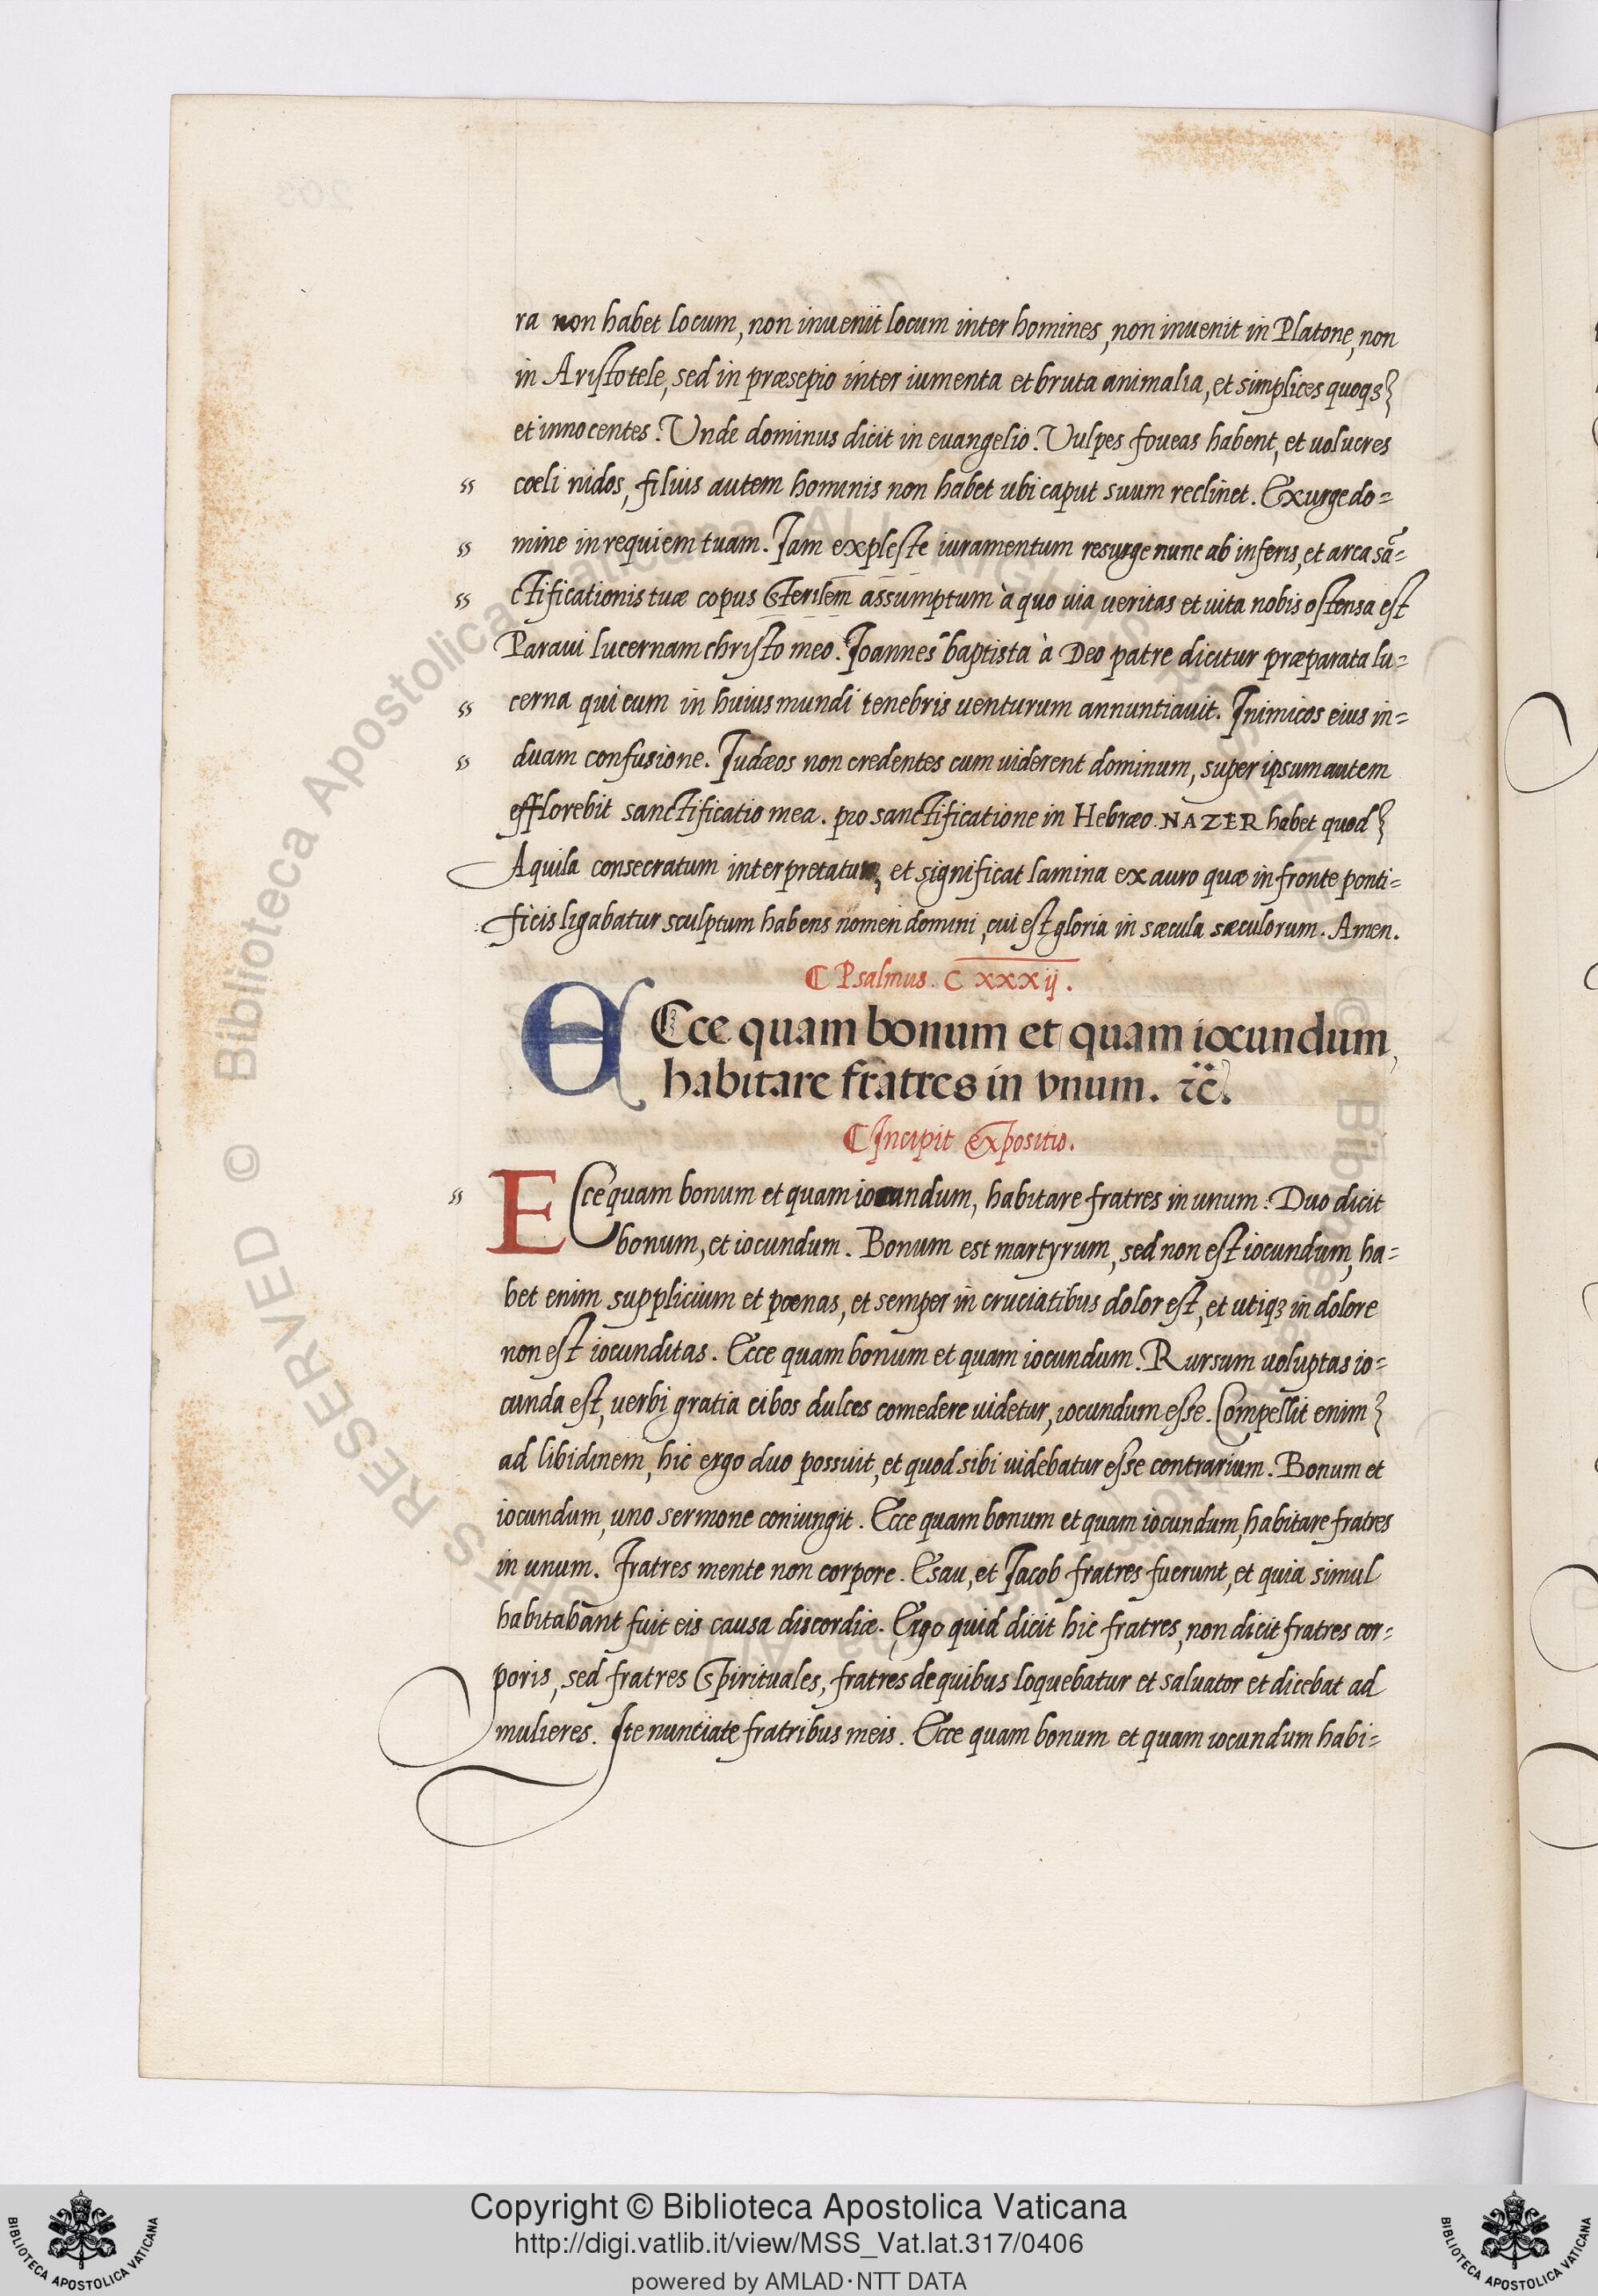 ra non habet locum, non inuenit locum inter homines, non inuenit in Platone, non
in Aristotele, sed in præsepio inter iumenta et bruta animalia, et simplices quoqꝫ
et innocentes. Unde dominus dicit in euangelio. Vulpes foueas habent, et uolucres
cœli nidos, filius autem hominis non habet ubi caput suum reclinet. Exurge do=
mine in requiem tuam. Iam expleste iuramentum resurge nunc ab inferis, et arca sã=
ctificationis tuæ copus sterilem assumptum à quo uia ueritas et uita nobis ostensa est
Paraui lucernam christo meo. Ioannes baptista à Deo patre dicitur præparata lu=
cerna qui eum in huius mundi tenebris uenturum annuntiauit. Inimicos eius in=
duam confusione. Iudæos non credentes cum uiderent dominum, super ipsum autem
efflorebit sanctificatio mea. pro sanctificatione in Hebræo NAZER habet quod
Aquila consecratum interpretatur, et significat lamina ex auro quæ in fronte ponti=
ficis ligabatur sculptum habens nomen domini, cui est gloria in sæcula sæculorum. Amen.
¶ Psalmus. CXXXij.
ECce quam bonum et quam iocundum,
habitare fratres in vnum. ⁊c̃.
¶ Incipit expositio.
ECce quam bonum et quam iocundum, habitare fratres in unum. Duo dicit
bonum, et iocundum. Bonum est martyrum, sed non est iocundum, ha=
bet enim supplicium et pœnas, et semper in cruciatibus dolor est, et utiqꝫ in dolore
non est iocunditas. Ecce quam bonum et quam iocundum. Rursum uoluptas io=
cunda est, uerbi gratia cibos dulces comedere uidetur, iocundum esse. Compellit enim
ad libidinem, hic ergo duo possuit, et quod sibi uidebatur esse contrarium. Bonum et
iocundum, uno sermone coniungit. Ecce quam bonum et quam iocundum, habitare fratres
in unum. Fratres mente non corpore. Esau, et Iacob fratres fuerunt, et quia simul
habitabant fuit eis causa discordiæ. Ergo quid dicit hic fratres, non dicit fratres cor=
poris, sed fratres spirituales, fratres de quibus loquebatur et saluator et dicebat ad
mulieres. Ite nunciate fratribus meis. Ecce quam bonum et quam iocundum habi=
Copyright © Biblioteca Apostolica Vaticana
http://digi.vatlib.it/view/MSS_Vat.lat.317/0406
powered by AMLAD·NTT DATA
BIBLIOTECA APOSTOLICA VATICANA
BIBLIOTECA APOSTOLICA VATICANA